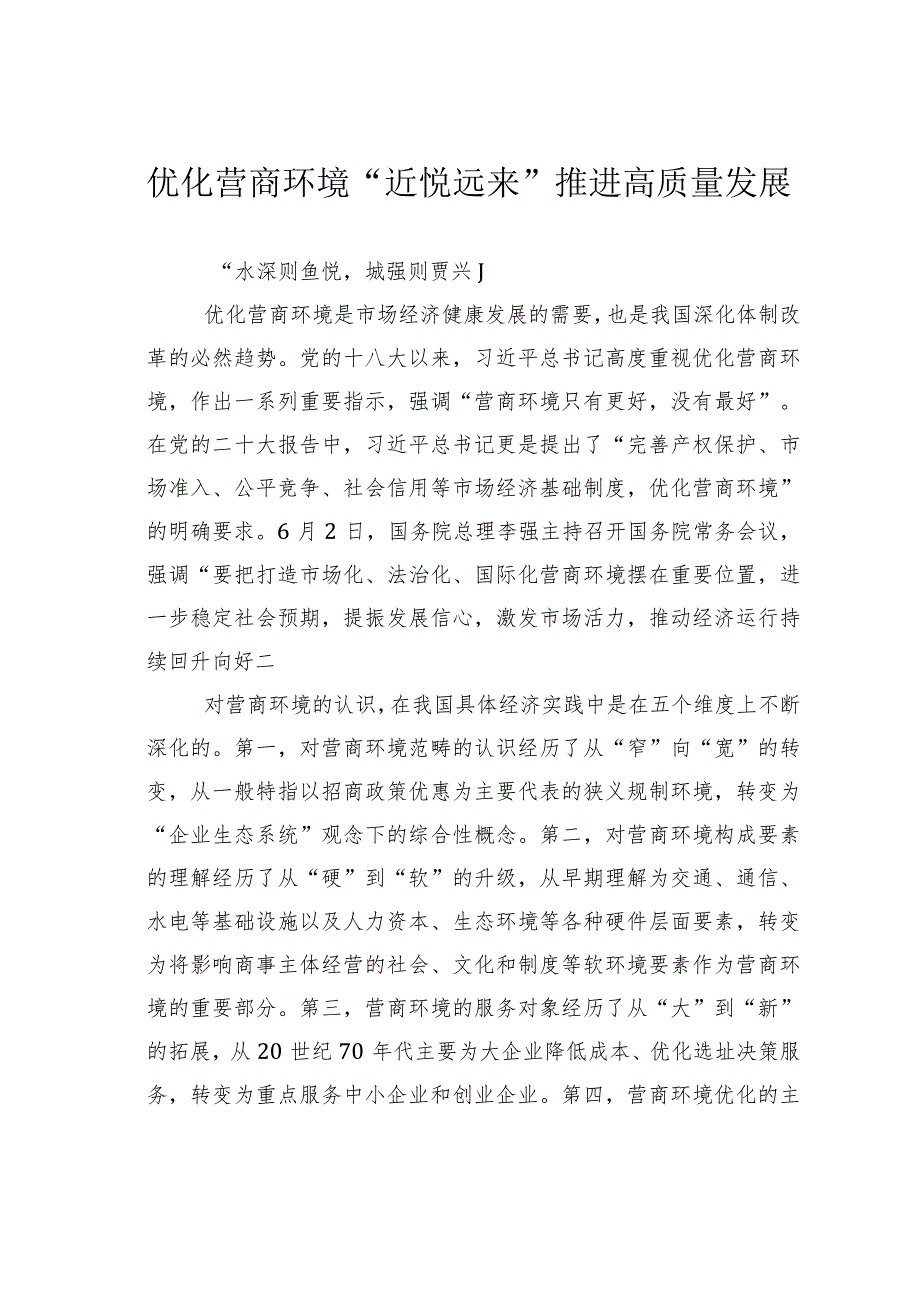 优化营商环境“近悦远来”推进高质量发展
“水深则鱼悦，城强则贾兴J
优化营商环境是市场经济健康发展的需要，也是我国深化体制改
革的必然趋势。党的十八大以来，习近平总书记高度重视优化营商环
境，作出一系列重要指示，强调“营商环境只有更好，没有最好”。
在党的二十大报告中，习近平总书记更是提出了“完善产权保护、市
场准入、公平竞争、社会信用等市场经济基础制度，优化营商环境”
的明确要求。6 月 2 日，国务院总理李强主持召开国务院常务会议，
强调“要把打造市场化、法治化、国际化营商环境摆在重要位置，进
一步稳定社会预期，提振发展信心，激发市场活力，推动经济运行持
续回升向好二
对营商环境的认识，在我国具体经济实践中是在五个维度上不断
深化的。第一，对营商环境范畴的认识经历了从“窄”向“宽”的转
变，从一般特指以招商政策优惠为主要代表的狭义规制环境，转变为
“企业生态系统”观念下的综合性概念。第二，对营商环境构成要素
的理解经历了从“硬”到“软”的升级，从早期理解为交通、通信、
水电等基础设施以及人力资本、生态环境等各种硬件层面要素，转变
为将影响商事主体经营的社会、文化和制度等软环境要素作为营商环
境的重要部分。第三，营商环境的服务对象经历了从“大”到“新”
的拓展，从 20 世纪 70 年代主要为大企业降低成本、优化选址决策服
务，转变为重点服务中小企业和创业企业。第四，营商环境优化的主